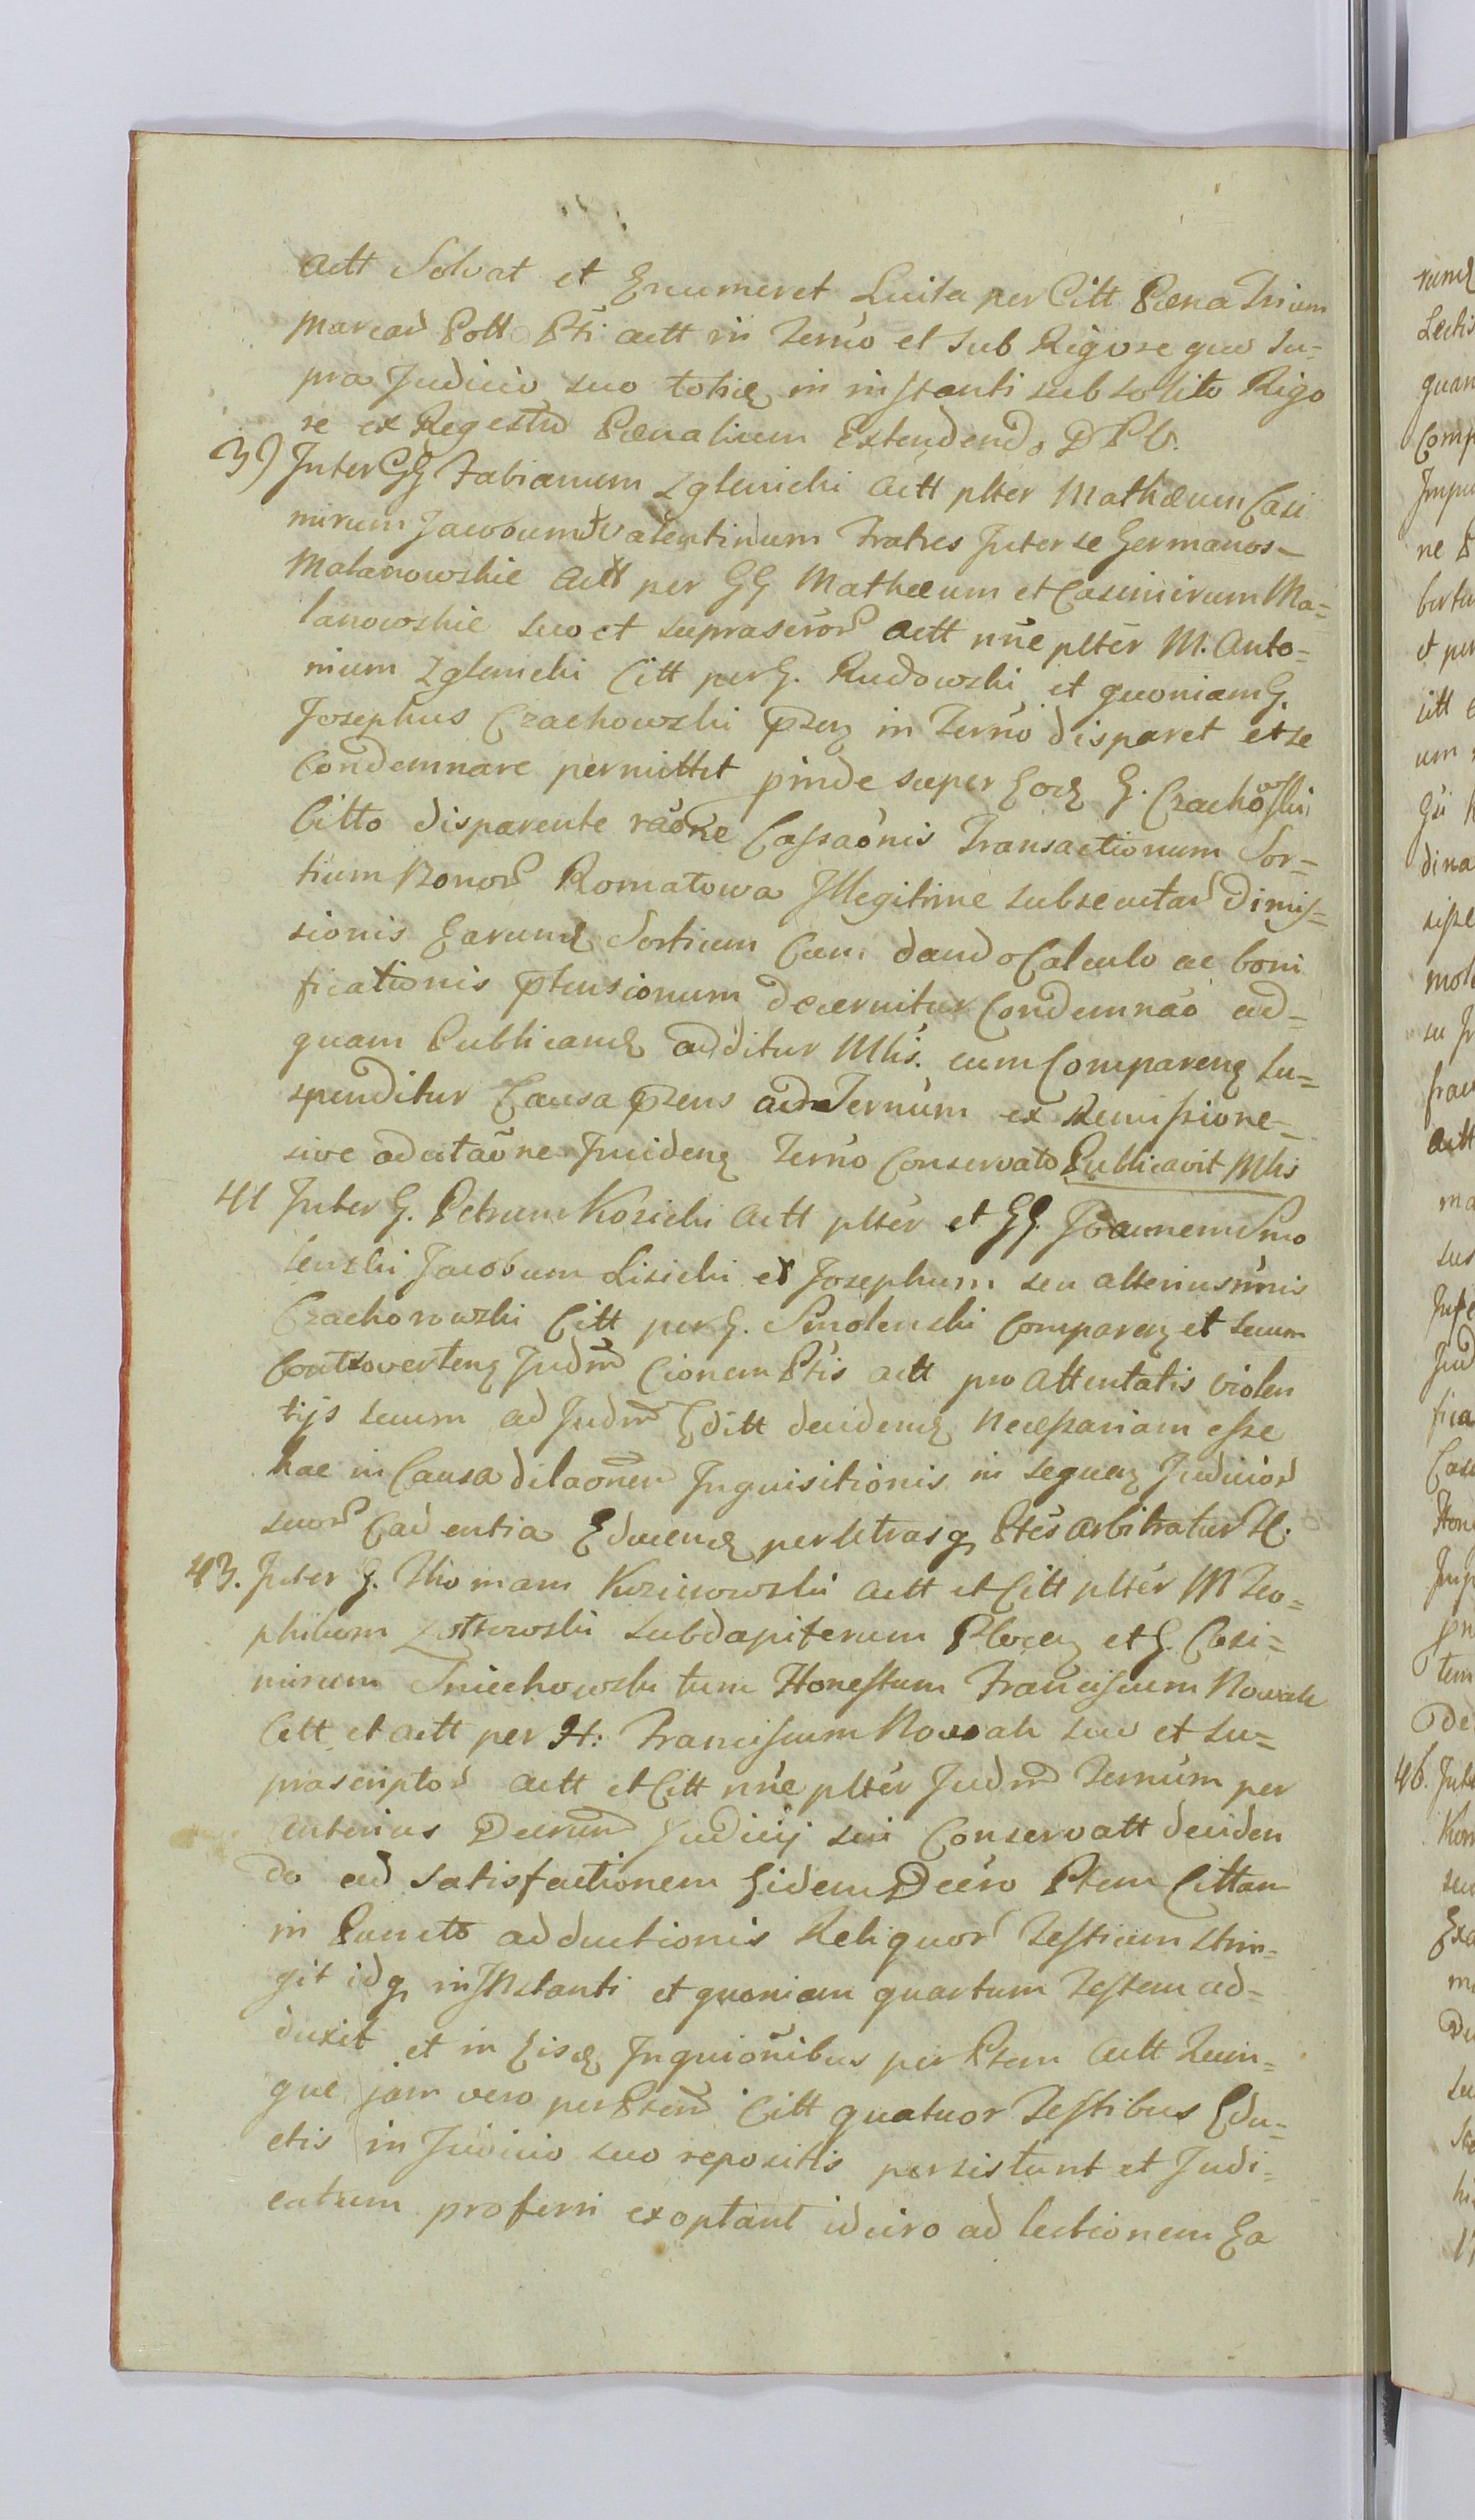 Actt Solvat et Enumeret Luita per Citt Pæna Trium
Marcar Poll Pti actt in Terno et sub Rigore quo Su=
pra Judicio suo toties in instanti sub solito Rigo
re ex Regestro Pænalium Extendend. D P U.
39 Inter GG Fabianum Zglenicki Actt plter Mathæum Casi
mirum Jacobum Valentinum Fratres Inter se Germanos
Malanowskie Actt per GG Mathæum et Casimirum Ma=
lanowskie suo et suprascror Actt nne plter M. Anto=
nium Zglenicki Citt per G. Rudowski et quoniam G.
Josephus Czachowski Pzen in Terno disparet et se
Condemnare permittit pinde super Eod G. Czachowski
Citto disparente raone Cassaonis Transactionum Sor=
tium Bonor Romatowa Illegitime subsecutar Dimis=
sionis Earund Sortium Cum dando Calculo ac boni
ficationis Ptensionum decernitur Condemnao ad=
quam Publicand additur Mlis. cum Comparen Su=
spenditur Causa Pzens ad Ternum ex Remissione
sive adcitaone Inciden Terno Conservato Publicavit Mlis
41 Inter G. Petrum Kozicki Actt plter et GG. Joannem Smo
lenski Jacobum Lisicki et Josephum seu alterius nnis
Czachorowski Citt per G. Smolenski Comparen et secum
Controverten Judm Cionem Ptis Actt pro Attentatis violen
tijs suum ad Judm Editt deciden Necessariam esse
hac in Causa dilaonem Inquisitionis in sequen Judicior
suor Cadentia Educend per Utrasq Ptes arbitratur H.
43. Inter G. Thomam Kozicowski Actt et Citt plter M Teo=
philum Zotkowski Subdapiferum Plocen et G. Casi=
mirum Sniechowski tum Honestum Franciscum Nowak
Citt et Actt per H: Franciscum Nowak suo et Su=
prascriptor Actt et Citt nne plter Judm Ternum per
anterius Decrum Judicij sui Conservatt deciden
do ad satisfactionem Eidem Decro Ptem Cittam
in Puncto adductionis Reliquor Testium strin=
git idq in Instanti et quoniam quartum Testem ad=
duxit et in Eisd Inquionibus per Ptem Actt Quin=
que jam vero per Ptem Citt quatuor Testibus Edu=
ctis in Judicio suo repositis persistunt et Judi=
catum proferri exoptant idcirco ad lectionem Ea